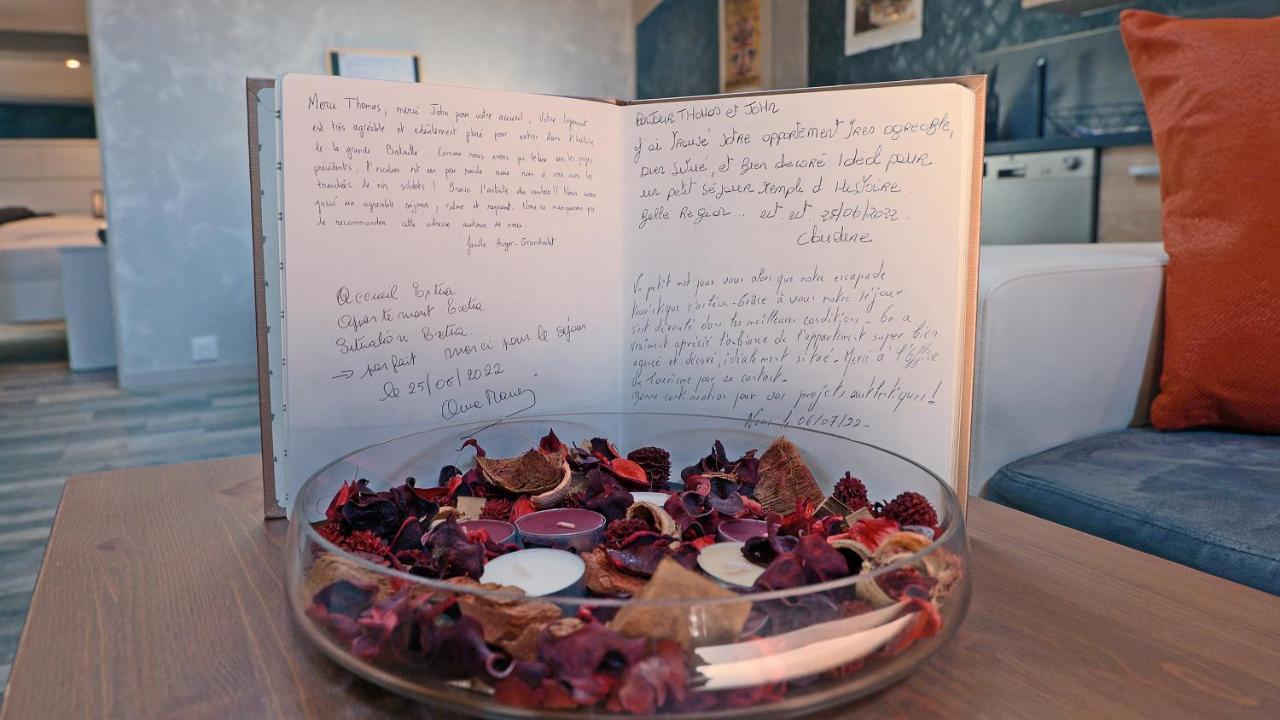 Merci Thomas, merci John pour votre accueil. Votre logement
est très agréable et idéalement placé pour entrer dans l'histoire
de la grande Bataille. Comme nous avons pu le lire sur les pages
précédentes, l'escalier est un peu raide mais rien à voir avec les
tranchées de nos soldats ! Bravo l'artiste du couloir !! Nous avons
passé un agréable séjour, calme et reposant. Nous ne manquerons pas
de recommander cette adresse autour de nous.
famille Auger-
Accueil Extra
Appartement Extra
Situation Extra.
→ parfait merci pour le séjour
le 25/06/2022
BONJOUR THOMAS ET JOHN
J'ai trouvé votre appartement très agréable,
bien situé, et bien décoré. Idéal pour
un petit séjour rempli d'Histoire.
Belle Region... est est. 25/06/2022.
Claudine
Un petit mot pour vous alors que notre escapade
touristique s'achève. Grâce à vous notre séjour
s'est déroulé dans les meilleures conditions. On a
vraiment apprécié l'ambiance de l'appartement super bien
agencé et décoré, idéalement situé. Merci à l'Office
de Tourisme pour ce contact.
Bonne continuation pour vos projets authentiques !
le 06/07/22.